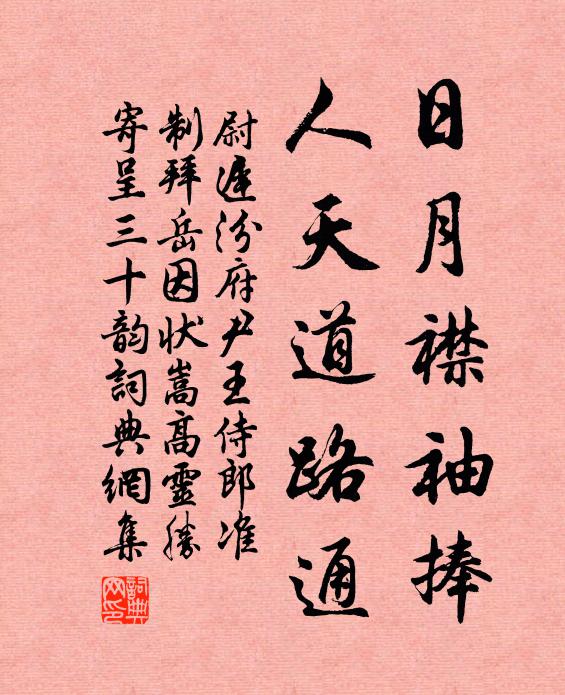 日月襟袖捧
人天道路通
尉遲汾府尹王侍郎准
制拜岳因狀嵩高靈勝
寄呈三十韵詞典網集
詞典網印